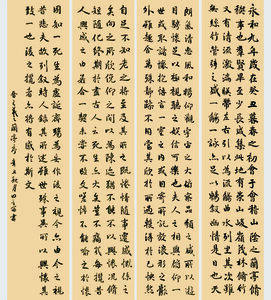 永和九年歲在癸丑暮春之初會于會稽山陰之蘭亭脩禊
事也群賢畢至少長咸集此地有崇山峻領茂林脩竹
又有清流激湍映帶左右引以為流觴曲水列坐其次雖
無絲竹管弦之盛一觴一詠亦足以暢敘幽情是日也天
朗氣清惠風和暢仰觀宇宙之大俯察品類之盛所以遊
目騁懷足以極視聽之娛信可樂也夫人之相與俯仰一
世或取諸懷抱悟言一室之內或因寄所託放浪形骸之
外雖趣舍萬殊靜躁不同當其欣於所遇暫得於己快然
自足不知老之將至及其所之既倦情隨事遷感慨係之
矣向之所欣俛仰之間已為陳跡猶不能不以之興懷況脩
短隨化終期於盡古人云死生亦大矣豈不痛哉每攬昔
人興感之由若合一契未嘗不臨文嗟悼不能喻之於懷
固知一死生為虛誕齊彭殤為妄作後之視今亦由今之視
昔悲夫故列敘時人錄其所述雖世殊事異所以興懷其
致一也後之攬者亦將有感於斯文
羲之蘭亭序 書